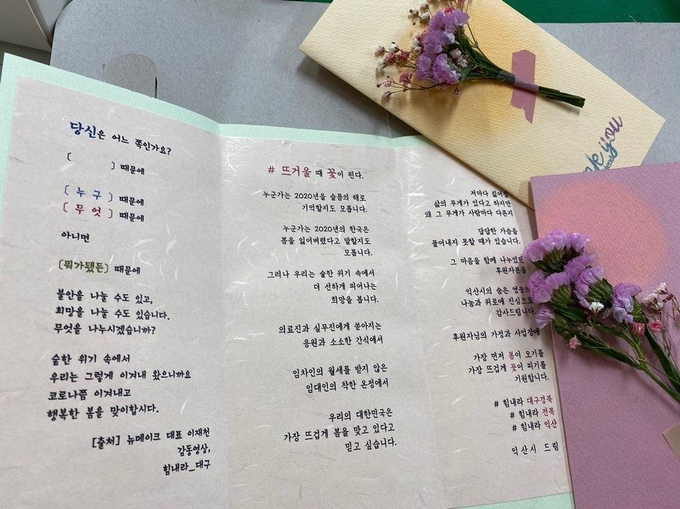 당신은 어느 쪽인가요?
[ ] 때문에
[누구] 때문에
[무엇] 때문에
아니면
[뭐가됐든] 때문에
불안을 나눌 수도 있고,
희망을 나눌 수도 있습니다.
무엇을 나누시겠습니까?
숱한 위기 속에서
우리는 그렇게 이겨내 왔으니까요
코로나쯤 이겨내고
행복한 봄을 맞이합시다.
[출처] 뉴메이크 대표 이재천
감동영상,
힘내라_대구
# 뜨거울 때 꽃이 핀다.
누군가는 2020년을 슬픔의 해로
기억할지도 모릅니다.
누군가는 2020년의 한국은
봄을 잃어버렸다고 말할지도
모릅니다.
그러나 우리는 숱한 위기 속에서
더 선하게 피어나는
희망을 봅니다.
의료진과 실무진에게 쏟아지는
응원과 소소한 간식에서
임차인의 월세를 받지 않은
임대인의 착한 온정에서
우리의 대한민국은
가장 뜨겁게 봄을 맞고 있다고
믿고 싶습니다.
저마다 짊어질
삶의 무게가 있다고 하지만
왜 그 무게가 사람마다 다른지
답답한 가슴을
풀어내지 못할 때가 있습니다.
그 마음을 함께
후원자분들
익산시의 숨은
나눔과 위로에 진심으로
감사드립니다.
후원자님의 가정과 사업장에
가장 먼저 봄이 오기를
가장 뜨겁게 꽃이 피기를
기원합니다.
# 힘내라 대구경북
# 힘내라 전북
# 힘내라 익산
익산시 드림
you